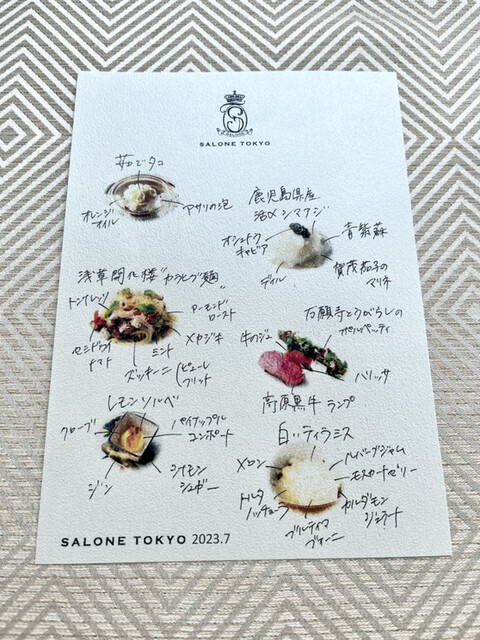 SALONE TOKYO
茹でタコ
オレンジ
オイル
アサリの泡
鹿児島県産
活〆シマアジ
オシェトラ
キャビア
青紫蘇
ディル
賀茂茄子の
マリネ
浅草開化楼"カラヒグ麺"
トンナレッリ
アーモンド
ロースト
メカジキ
セミドライ
トマト
ミント
ズッキーニ
ピューレ
フリット
万願寺とうがらしの
牛のジュ
ハリッサ
高原黒牛 ランプ
レモンソルベ
クローブ
パイナップル
コンポート
ジン
シナモン
シュガー
白いティラミス
メロン
ルバーブジャム
モスカートゼリー
トルタ
ノッチョーラ
カルダモン
ジェラート
SALONE TOKYO 2023.7